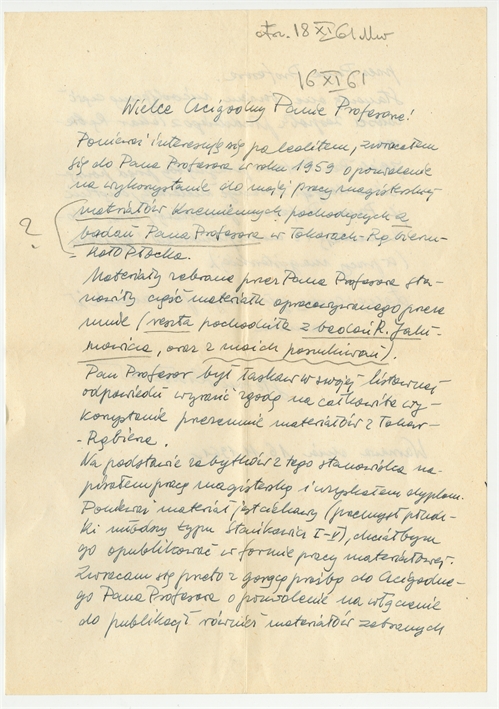 otrz. 18 XI 61 Mw
16 XI 61
Wielce Czcigodny Panie Profesorze!
Ponieważ interesuję się paleolitem, zwróciłem
się do Pana Profesora w roku 1959 o pozwolenie
na wykorzystanie do mojej pracy magisterskiej
materiałów krzemiennych pochodzących z
?
badań Pana Profesora w Tokarach-Rąbierzu-
koło Płocka.
Materiały zebrane przez Pana Profesora sta-
nowiły część materiału opracowywanego przeze
mnie (reszta pochodziła z badań R. Jaki-
mowicza, oraz z moich poszukiwań).
Pan Profesor był łaskaw w swojej listownej
odpowiedzi wyrazić zgodę na całkowite wy-
korzystanie przeze mnie materiałów z Tokar-
-Rąbierza.
Na podstawie zabytków z tego stanowiska na-
pisałem pracę magisterską i uzyskałem dyplom.
Ponieważ materiał jest ciekawy (przemysł płudz-
ki młodszy typu Stańkowicze I-V), chciałbym
go opublikować w formie pracy materiałowej.
Zwracam się przeto z gorącą prośbą do Czcigodne-
go Pana Profesora o pozwolenie na włączenie
do publikacji również materiałów zebranych